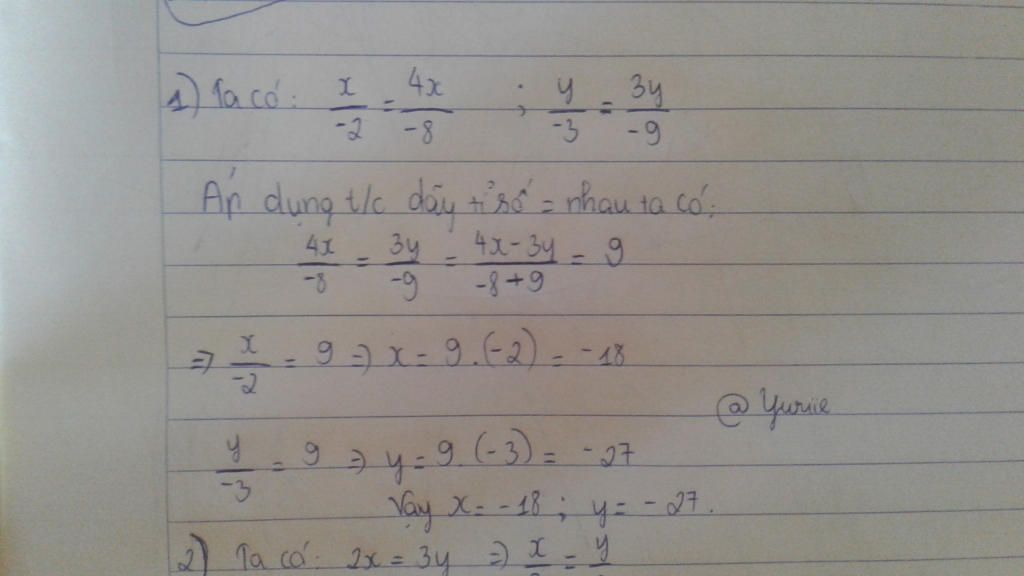 1) Ta có: x/-2 = 4x/-8 ; y/-3 = 3y/-9
Áp dụng t/c dãy tỉ số = nhau ta có:
4x/-8 = 3y/-9 = 4x-3y/-8+9 = 9
=> x/-2 = 9 => x = 9.(-2) = -18
@ Yuriie
y/-3 = 9 => y = 9.(-3) = -27
Vậy x = -18 ; y = -27.
2) Ta có: 2x = 3y => x = y